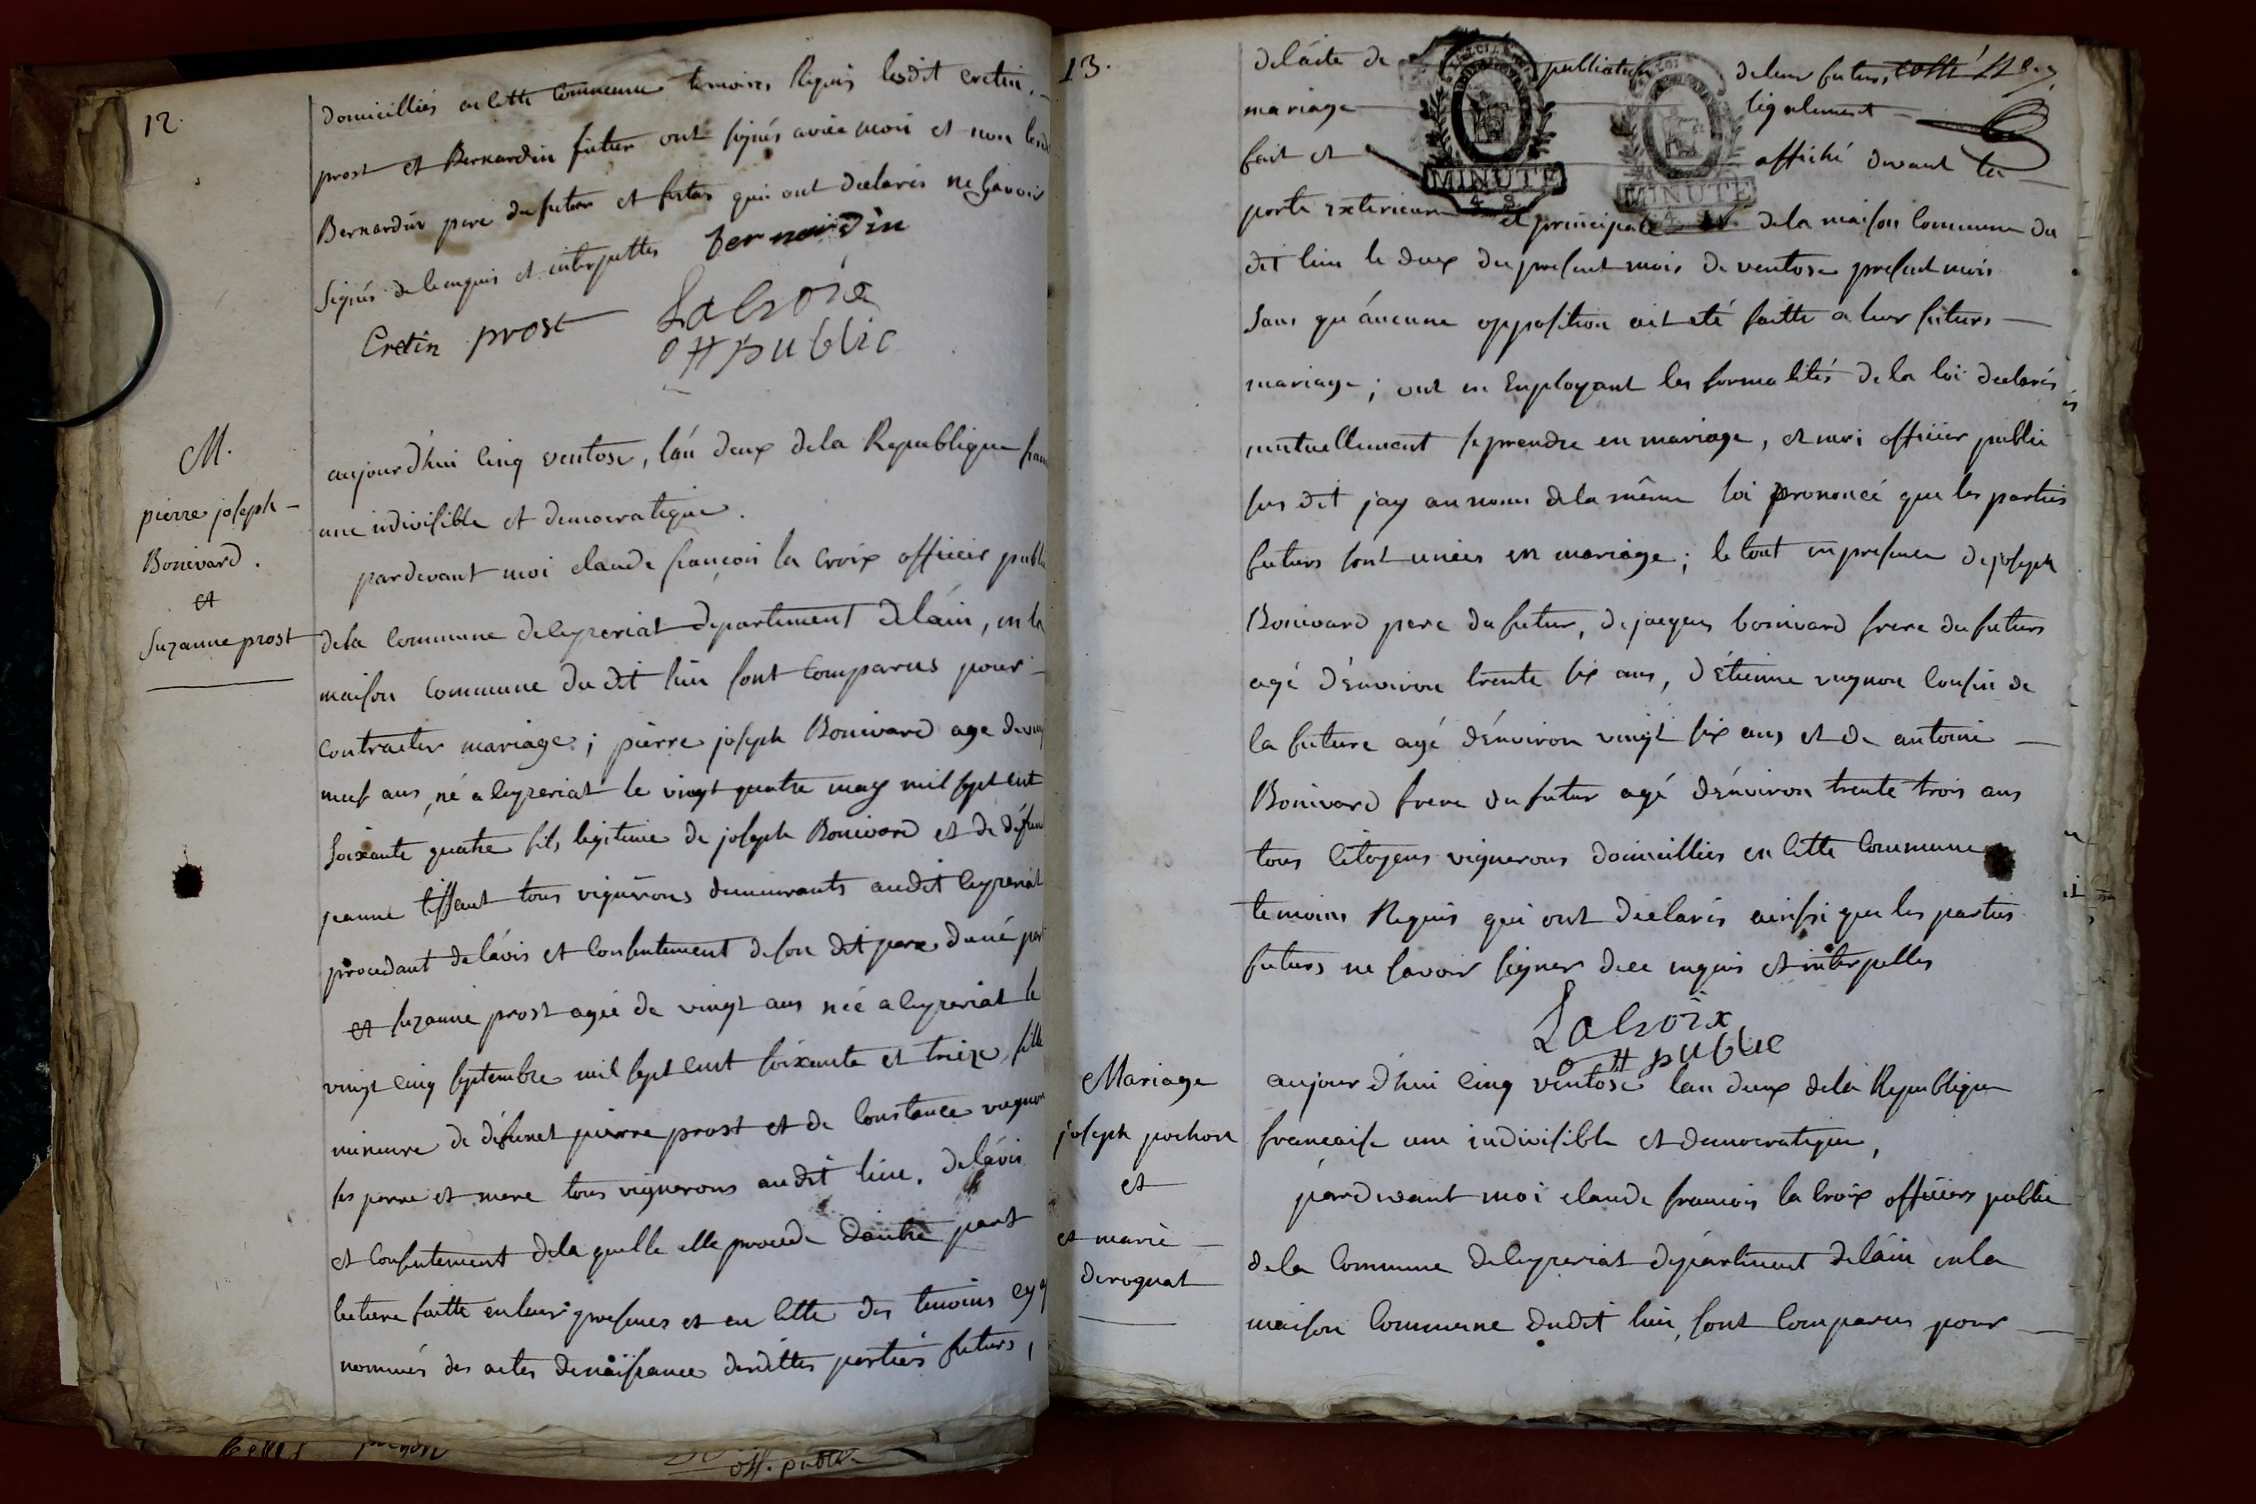 12.
domicilliés en cette commune temoins Requis lesdit cretin
prost et Bernardin futur ont signés avec moi et non
Bernardin pere du futur et futur qui ont declarés ne savoir
signés de enquis et interpellés bernardin
Cretin prost Lacroix
off public
M.
pierre joseph
Bonivard.
et
Suzanne prost
aujourd'hui cinq ventose, l'an deux de la Republique
une indivisible et democratique.
pardevant moi claude françois la croix officier
de la commune de lepreriat departement de l'ain, en
maison commune du dit lieu sont comparus pour
contracter mariage ; pierre joseph Bonivard age de
neuf ans, né a lepreriat le vingt quatre may mil sept cent
soixante quatre fils legitime de joseph Bonivard et de
jeanne tissant tous vignerons demeurants audit lepreriat
procedant de l'avis et consentement de son dit pere d'une
et suzanne prost agée de vingt ans née a lepreriat le
vingt cinq septembre mil sept cent soixante et treize, fille
mineure de défunct pierre prost et de Constance
ses perre et mere tous vignerons au dit lieu. de l'avis
et consentement de la quelle elle procede d'autre part
lecture faitte en leurs presences et en cette des temoins
nommés des actes de naissance desdittes parties futurs,
13.
de l'acte de publication de leur futurs
mariage legalement
fait et affiché devant la
porte exterieure et principale de la maison commune du
dit lieu le deux du present mois de ventose present mois
sans qu'aucune opposition ait eté faitte a leur futurs
mariage ; ont en Employant les formalités de la loi declarés
mutuellement se prendre en mariage, et moi officier public
sus dit jay au nom de la même loi prononcé que les parties
futurs sont unies en mariage ; le tout en presence de joseph
Bonivard pere du futur, de jacques bonivard frere du futurs
agé d'environ trente six ans, d'étienne vugnon cousin de
la future agé d'environ vingt six ans et de antoine
Bonivard frere du futur agé d'environ trente trois ans
tous citoyens vignerons domicilliés en cette commune
temoins Requis qui ont declarés ainsi que les parties
futurs ne savoir signer de ce enquis et interpelles
Lacroix
off public
Mariage
joseph pochon
et
et marie
derognat
aujourd'hui cinq ventose lan deux de la Republique
francaise une indivisible et democratique,
pardevant moi claude francois la croix officier public
de la Commune de lepreriat departement de l'ain en la
maison Commune dudit lieu, sont comparus pour
off. public
MINUTE
MINUTE